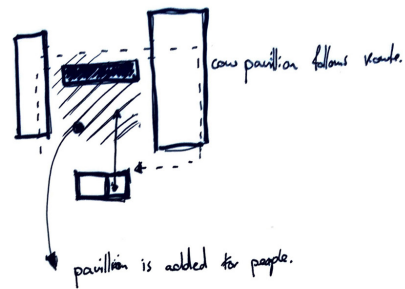 cow pavillion follows route.
pavillion is added for people.